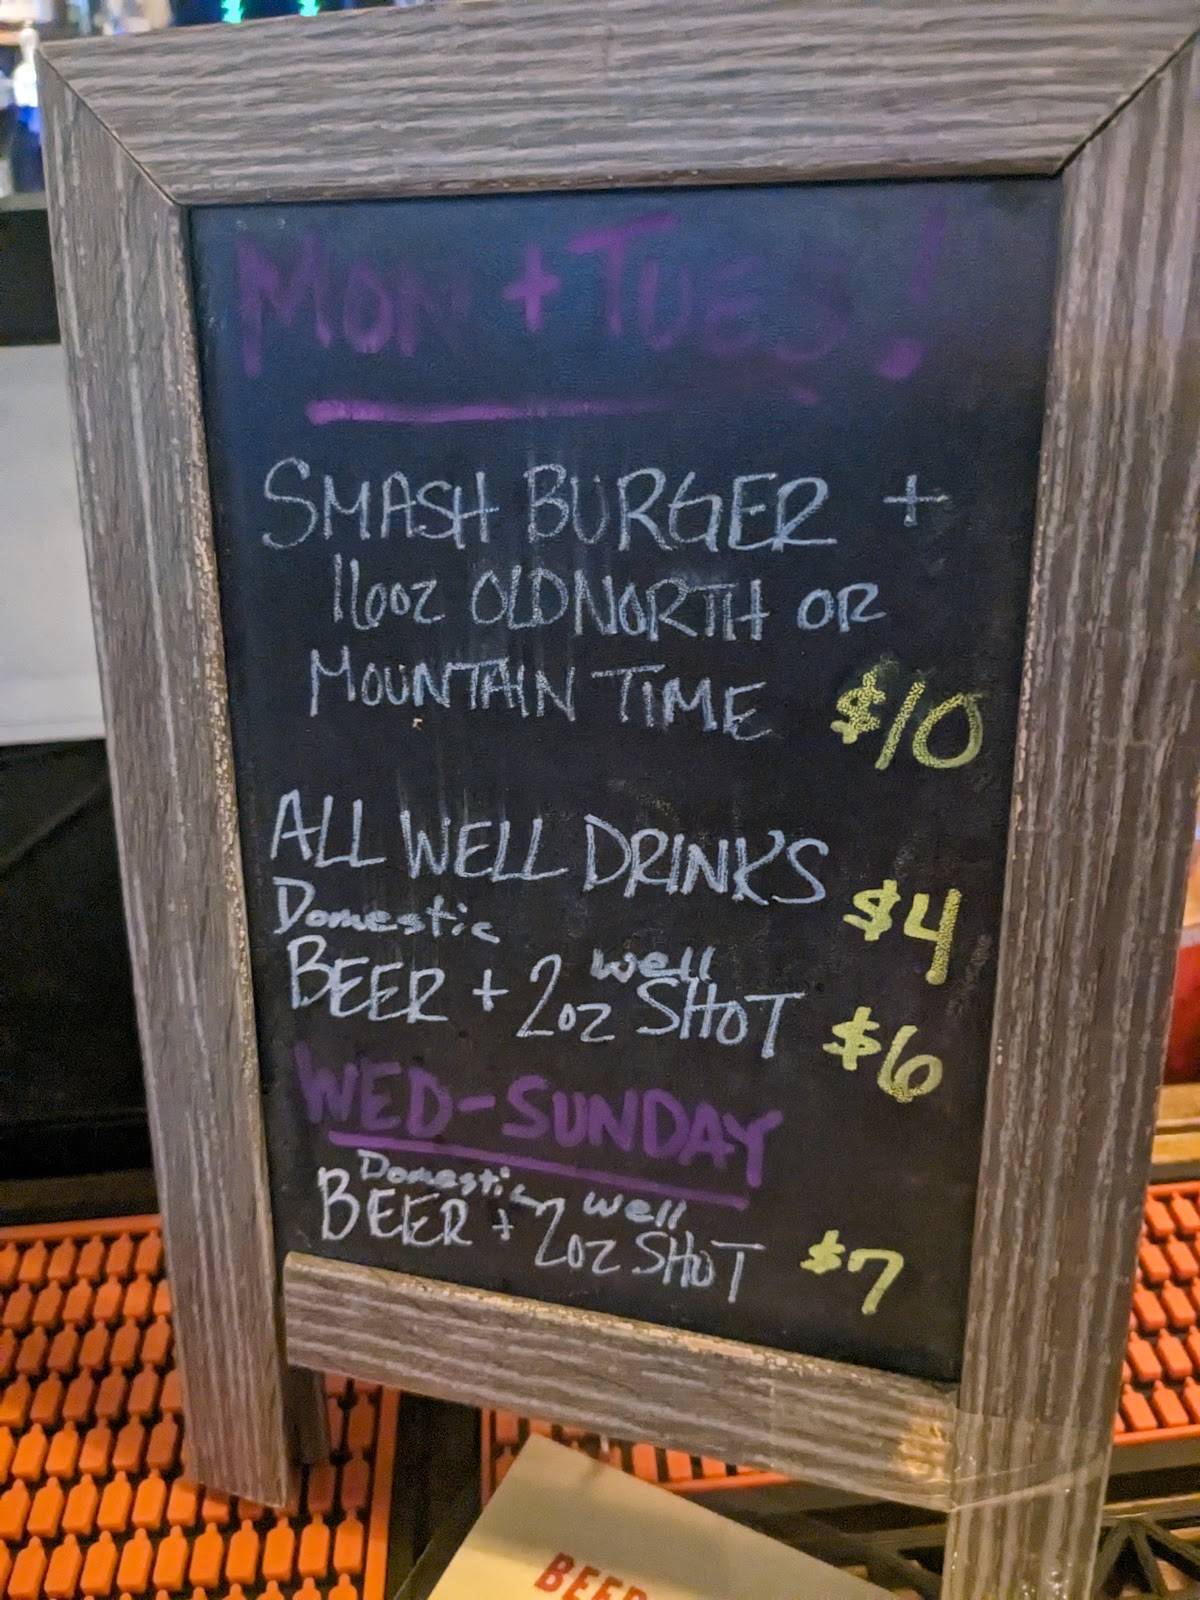 MON + TUES!
SMASH BURGER +
16oz OLD NORTH OR
MOUNTAIN TIME $10
ALL WELL DRINKS $4
Domestic
BEER + 2oz well SHOT $6
WED-SUNDAY
Domestic well
BEER + 2oz SHOT $7
BEER